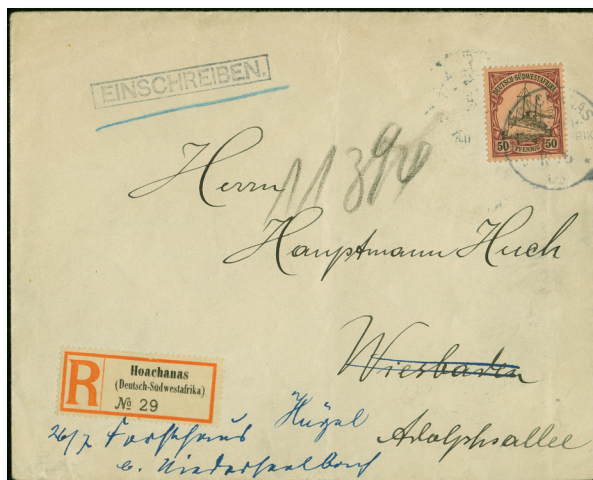 EINSCHREIBEN.
DEUTSCH-SÜDWESTAFRIKA
50 PFENNIG 50
Herrn
Hauptmann Huch
Wiesbaden
Adolphsallee
R
Hoachanas
(Deutsch-Südwestafrika)
№ 29
26/7 Forsthaus Hügel
b. Niederseelbach